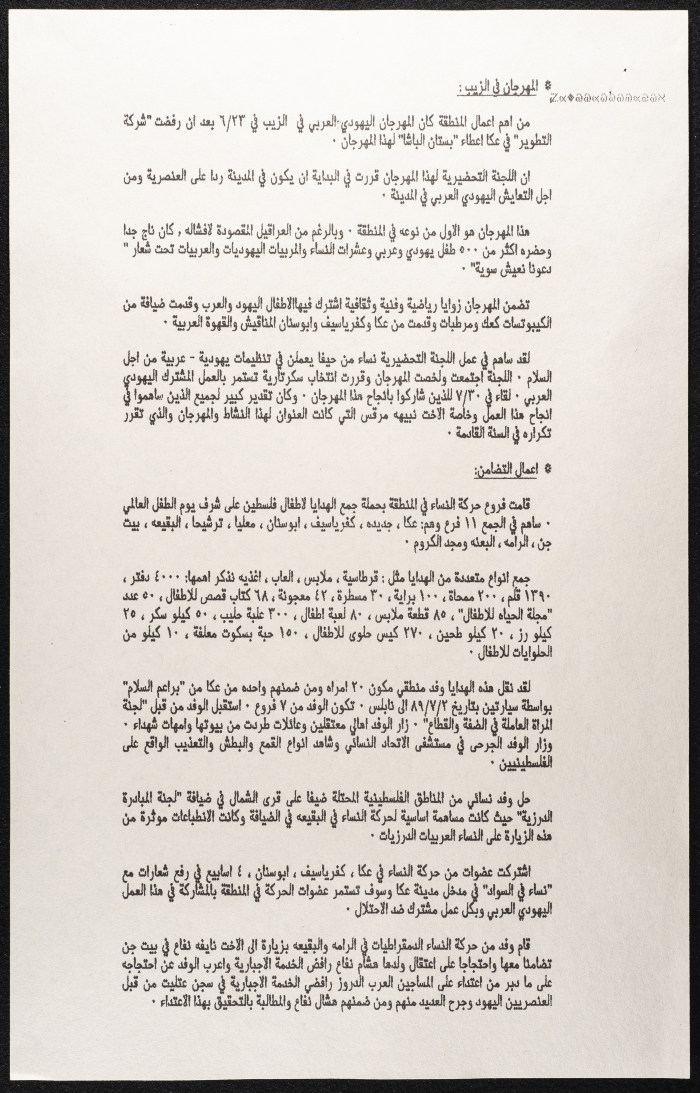 * المهرجان في الزيب :
من اهم اعمال المنطقة كان المهرجان اليهودي-العربي في الزيب في ٦/٢٣ بعد ان رفضت "شركة
التطوير" في عكا اعطاء "بستان الباشا" لهذا المهرجان ٠
ان اللجنة التحضيرية لهذا المهرجان قررت في البداية ان يكون في المدينة ردا على العنصرية ومن
اجل التعايش اليهودي العربي في المدينة ٠
هذا المهرجان هو الاول من نوعه في المنطقة ٠ وبالرغم من العراقيل المقصودة لافشاله , كان ناجح جدا
وحضره اكثر من ٥٠٠ طفل يهودي وعربي وعشرات النساء والمربيات اليهوديات والعربيات تحت شعار "
دعونا نعيش سوية" ٠
تضمن المهرجان زوايا رياضية وفنية وثقافية اشترك فيهاالاطفال اليهود والعرب وقدمت ضيافة من
الكيبوتسات كعك ومرطبات وقدمت من عكا وكفرياسيف وابوسنان المناقيش والقهوة العربية ٠
لقد ساهم في عمل اللجنة التحضيرية نساء من حيفا يعملن في تنظيمات يهودية - عربية من اجل
السلام ٠ اللجنة اجتمعت ولخصت المهرجان وقررت انتخاب سكرتارية تستمر بالعمل المشترك اليهودي
العربي ٠ لقاء في ٧/٣٠ للذين شاركوا بانجاح هذا المهرجان ٠ وكان تقدير كبير لجميع الذين ساهموا في
انجاح هذا العمل وخاصة الاخت نبيهه مرقس التي كانت العنوان لهذا النشاط والمهرجان والذي تقرر
تكراره في السنة القادمة ٠
* اعمال التضامن:
قامت فروع حركة النساء في المنطقة بحملة جمع الهدايا لاطفال فلسطين على شرف يوم الطفل العالمي
٠ ساهم في الجمع ١١ فرع وهم: عكا ، جديده ، كفرياسيف ، ابوسنان ، معليا ، ترشيحا ، البقيعه ، بيت
جن ، الرامه ، البعنه ومجد الكروم ٠
جمع انواع متعددة من الهدايا مثل : قرطاسية ، ملابس ، العاب ، اغذيه نذكر اهمها: ٤٠٠٠ دفتر ،
١٣٩٠ قلم ، ٢٠٠ ممحاة ، ١٠٠ براية ، ٣٠ مسطرة ، ٤٢ معجونة ، ٦٨ كتاب قصص للاطفال ، ٥٠ عدد
"مجلة الحياه للاطفال" ، ٨٥ قطعة ملابس ، ٨٠ لعبة اطفال ، ٣٠٠ علبة حليب ، ٥٠ كيلو سكر ، ٢٥
كيلو رز ، ٢٠ كيلو طحين ، ٢٧٠ كيس حلوى للاطفال ، ١٥٠ حبة بسكوت مغلفة ، ١٠ كيلو من
الحلوايات للاطفال ٠
لقد نقل هذه الهدايا وفد منطقي مكون ٢٠ امراه ومن ضمنهم واحده من عكا من "براعم السلام"
بواسطة سيارتين بتاريخ ٨٩/٧/٢ الى نابلس ٠ تكون الوفد من ٧ فروع ٠ استقبل الوفد من قبل "لجنة
المراة العاملة في الضفة والقطاع" ٠ زار الوفد اهالي معتقلين وعائلات طردت من بيوتها وامهات شهداء ٠
وزار الوفد الجرحى في مستشفى الاتحاد النسائي وشاهد انواع القمع والبطش والتعذيب الواقع على
الفلسطينيين ٠
حل وفد نسائي من المناطق الفلسطينية المحتلة ضيفا على قرى الشمال في ضيافة "لجنة المبادرة
الدرزية" حيث كانت مساهمة اساسية لحركة النساء في البقيعه في الضيافة وكانت الانطباعات موثرة من
هذه الزيارة على النساء العربيات الدرزيات ٠
اشتركت عضوات من حركة النساء في عكا ، كفرياسيف ، ابوسنان ، ٤ اسابيع في رفع شعارات مع
"نساء في السواد" في مدخل مدينة عكا وسوف تستمر عضوات الحركة في المنطقة بالمشاركة في هذا العمل
اليهودي العربي وبكل عمل مشترك ضد الاحتلال ٠
قام وفد من حركة النساء الدمقراطيات في الرامه والبقيعه بزيارة الى الاخت نايفه نفاع في بيت جن
تضامنا معها واحتجاجا على اعتقال ولدها هشام نفاع رافض الخدمة الاجبارية واعرب الوفد عن احتجاجه
على ما دبر من اعتداء على المساجين العرب الدروز رافضي الخدمة الاجبارية في سجن عتليت من قبل
العنصريين اليهود وجرح العديد منهم ومن ضمنهم هشال نفاع والمطالبة بالتحقيق بهذا الاعتداء ٠